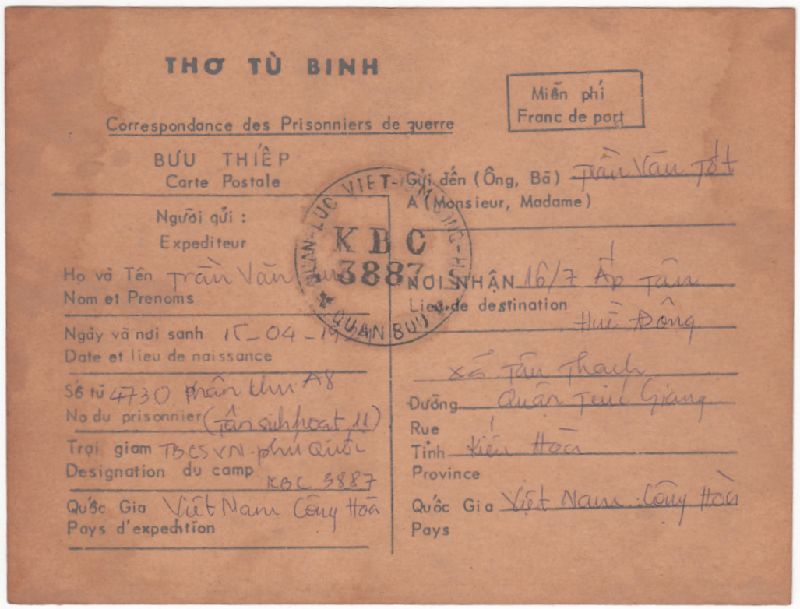 THƠ TÙ BINH
Correspondance des Prisonniers de guerre
Miễn phí
Franc de port
BƯU THIẾP
Carte Postale
Người gửi :
Expediteur
Họ và Tên Trần Văn
Nom et Prenoms
Ngày và nơi sanh 15-04-19
Date et lieu de naissance
Số tù 4730 phân khu A8
No du prisonnier (Tân sinh hoạt 11)
Trại giam TBCSVN-phú Quốc
Designation du camp KBC 3887
Quốc Gia Việt Nam Cộng Hòa
Pays d'expedition
QUÂN-LỰC VIỆT-NAM CỘNG-HÒA
KBC
3887
QUÂN BƯU
Gửi đến (Ông, Bà) Trần Văn Tốt
A (Monsieur, Madame)
NƠI NHẬN 16/7 Ấp Tân
Lieu de destination
Huề Đông
xã Tân Thạch
Đường Quận Trúc Giang
Rue
Tỉnh Kiến Hòa
Province
Quốc Gia Việt Nam Cộng Hòa
Pays